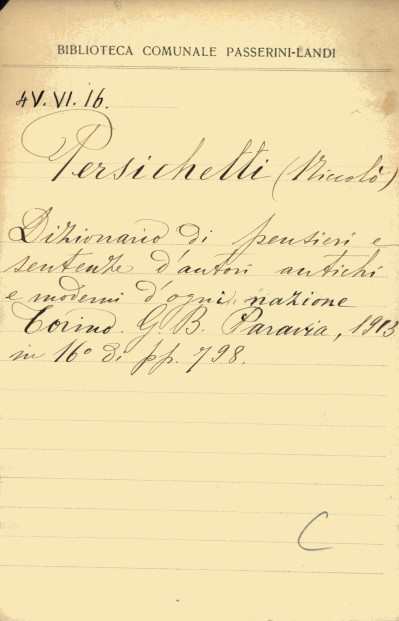 BIBLIOTECA COMUNALE PASSERINI-LANDI
4V.VI.16.
Persichetti (Niccolò)
Dizionario di pensieri e
sentenze d'autori antichi
e moderni d'ogni nazione
Torino. G. B. Paravia, 1913
in 16º di pp. 798.
C